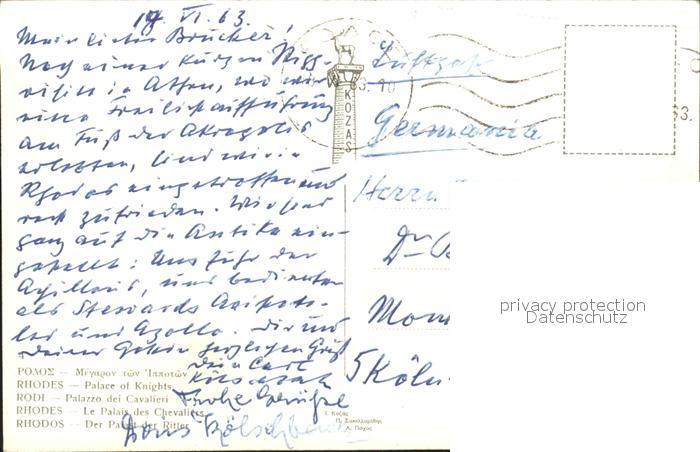 19. VI. 63.
Mein lieber Brücker!
Nach einer kurzen
visite in Athen, wo wir
eine Freilichtaufführung
am Fuß der Akropolis
erlebten, sind wir in
Rhodos eingetroffen und
recht zufrieden. Wir sind
ganz auf die Antike ein-
gestellt: Uns fuhr der
Achilleus, und bedienten
als Stewards Aristote-
les und Apollo. Dir und
Deiner Gattin herzlichen Gruß
Dein Carl
Frohe Grüße
Doris
ΡΟΔΟΣ — Μέγαρον τῶν Ἱπποτῶν
RHODES — Palace of Knights
RODI — Palazzo dei Cavalieri
RHODES — Le Palais des Chevaliers
RHODOS — Der Palast der Ritter
KOZAS
Luftpost
Germania
Herrn
Dr
5 Köln
privacy protection
Datenschutz